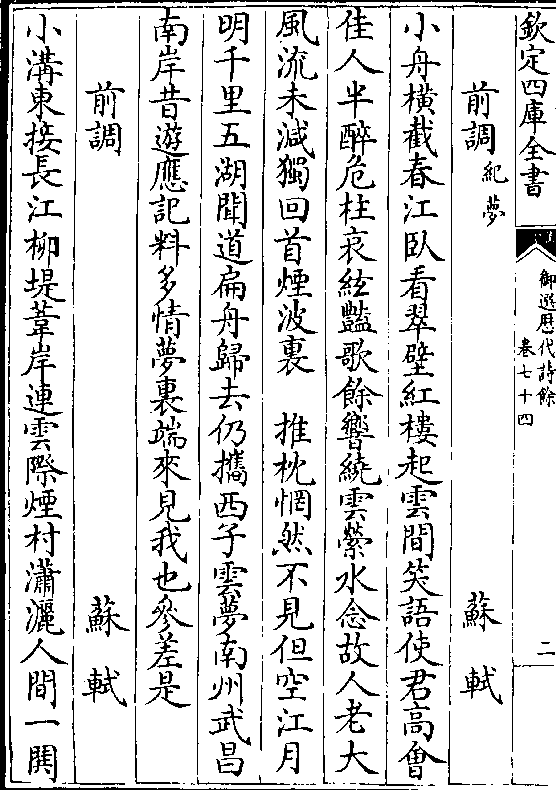 欽定四庫全書
御選歷代詩餘
卷七十四
二
前調 紀夢 蘇軾
小舟橫截春江臥看翠壁紅樓起雲間笑語使君高會
佳人半醉危柱哀絃豔歌餘響繞雲縈水念故人老大
風流未減獨回首煙波裏 推枕惘然不見但空江月
明千里五湖聞道扁舟歸去仍攜西子雲夢南州武昌
南岸昔遊應記料多情夢裏端來見我也參差是
前調 蘇軾
小溝東接長江柳堤葦岸連雲際煙村瀟灑人間一閧